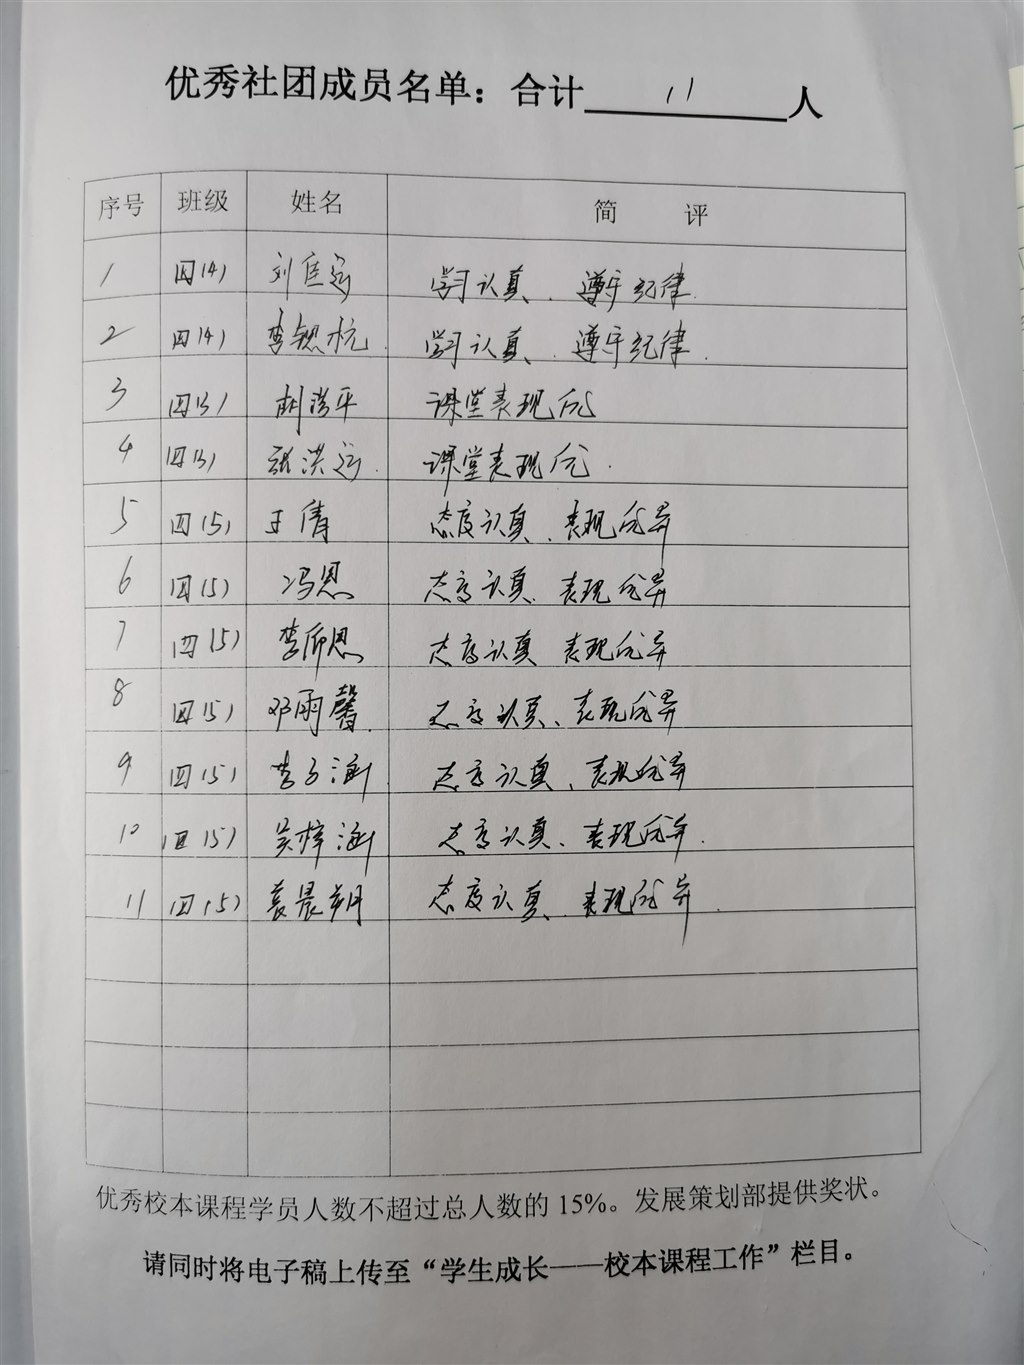 优秀社团成员名单：合计 11 人
序号 班级 姓名 简 评
1 四(4) 刘佳运 学习认真、遵守纪律.
2 四(4) 李锶杭 学习认真、遵守纪律.
3 四(3) 胡浩平 课堂表现优
4 四(3) 张洪运. 课堂表现优.
5 四(5) 王倩 态度认真、表现优异
6 四(5) 冯恩 态度认真、表现优异
7 四(5) 李所恩 态度认真 表现优异
8 四(5) 邓雨馨. 态度认真、表现优异
9 四(5) 李子涵 态度认真、表现优异
10 四(5) 吴梓涵 态度认真、表现优异.
11 四(5) 晨朔 态度认真、表现优异.
优秀校本课程学员人数不超过总人数的 15%。发展策划部提供奖状。
请同时将电子稿上传至“学生成长——校本课程工作”栏目。